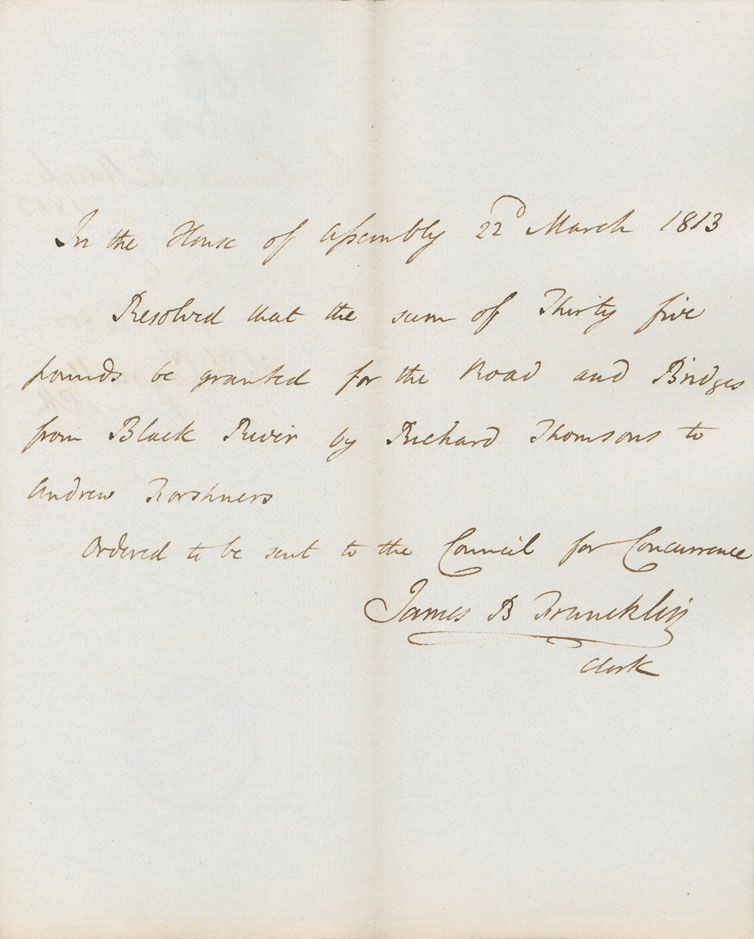 In the House of Assembly 22d March 1813
Resolved that the sum of Thirty five
pounds be granted for the Road and Bridges
from Black River by Richard Thomsons to
Andrew Korshners
Ordered to be sent to the Council for Concurrence
James B Francklin
Clerk